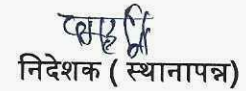 निदेशक ( स्थानापन्न )